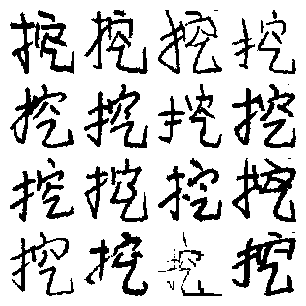 挖挖挖挖
挖挖挖挖
挖挖挖挖
挖挖挖挖